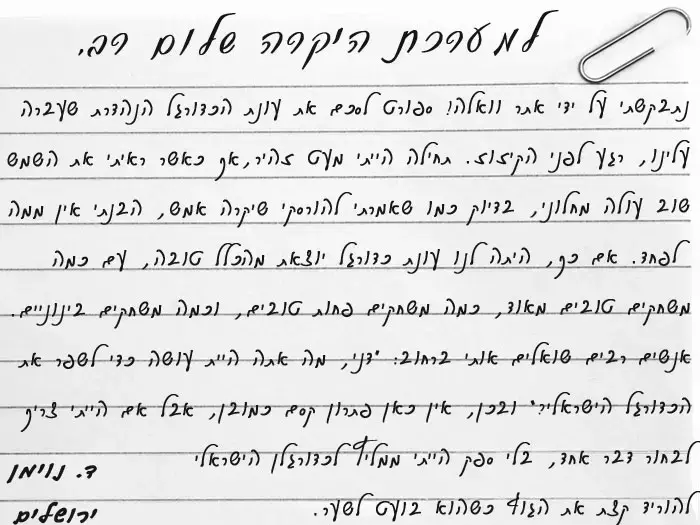 למערכת היקרה שלום רב,
נתבקשתי על ידי אתר וואלה! ספורט לסכם את עונת הכדורגל הנהדרת שעברה
עלינו, רגע לפני הקיזוז. תחילה הייתי מעט זהיר, אך כאשר ראיתי את השמש
שוב עולה מחלוני, בדיוק כמו שאמרתי להורסקי שיקרה אמש, הבנתי אין ממה
לפחד. אם כך, היתה לנו עונת כדורגל יוצאת מהכלל טובה, עם כמה
משחקים טובים מאוד, כמה משחקים פחות טובים, וכמה משחקים בינוניים.
אנשים רבים שואלים אותי ברחוב: "דני, מה אתה היית עושה כדי לשפר את
הכדורגל הישראלי?" ובכן, אין כאן פתרון קסם כמובן, אבל אם הייתי צריך
לבחור דבר אחד, בלי ספק הייתי ממליץ לכדורגלן הישראלי
להוריד קצת את הגוף כשהוא בועט לשער.
ד. נוימן
ירושלים